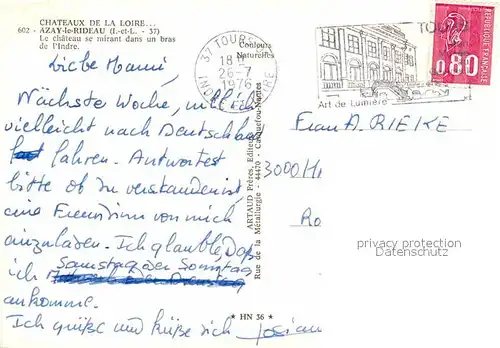 CHATEAUX DE LA LOIRE...
602 - AZAY-le-RIDEAU (I.-et-L. - 37)
Le château se mirant dans un bras
de l'Indre.
Couleurs
Naturelles
37 TOURS
18 H
26-7
1976
Art de Lumière
RÉPUBLIQUE FRANÇAISE
0,80
Liebe Mammi,
Nächste Woche, will ich
vielleicht nach Deutschland
fahren. Antwortest
bitte ob du verstanden ist,
eine Freundinn von mich
einzuladen. Ich glaube, Daß
ich Samstag oder Sonntag
ankomme.
Ich grüße und küße dich Josiane
ARTAUD Frères, Editeurs
Rue de la Métallurgie - 44470 - Carquefou-Nantes
* HN 36 *
Frau A. RIEKE
3000 H
Ro
privacy protection
Datenschutz